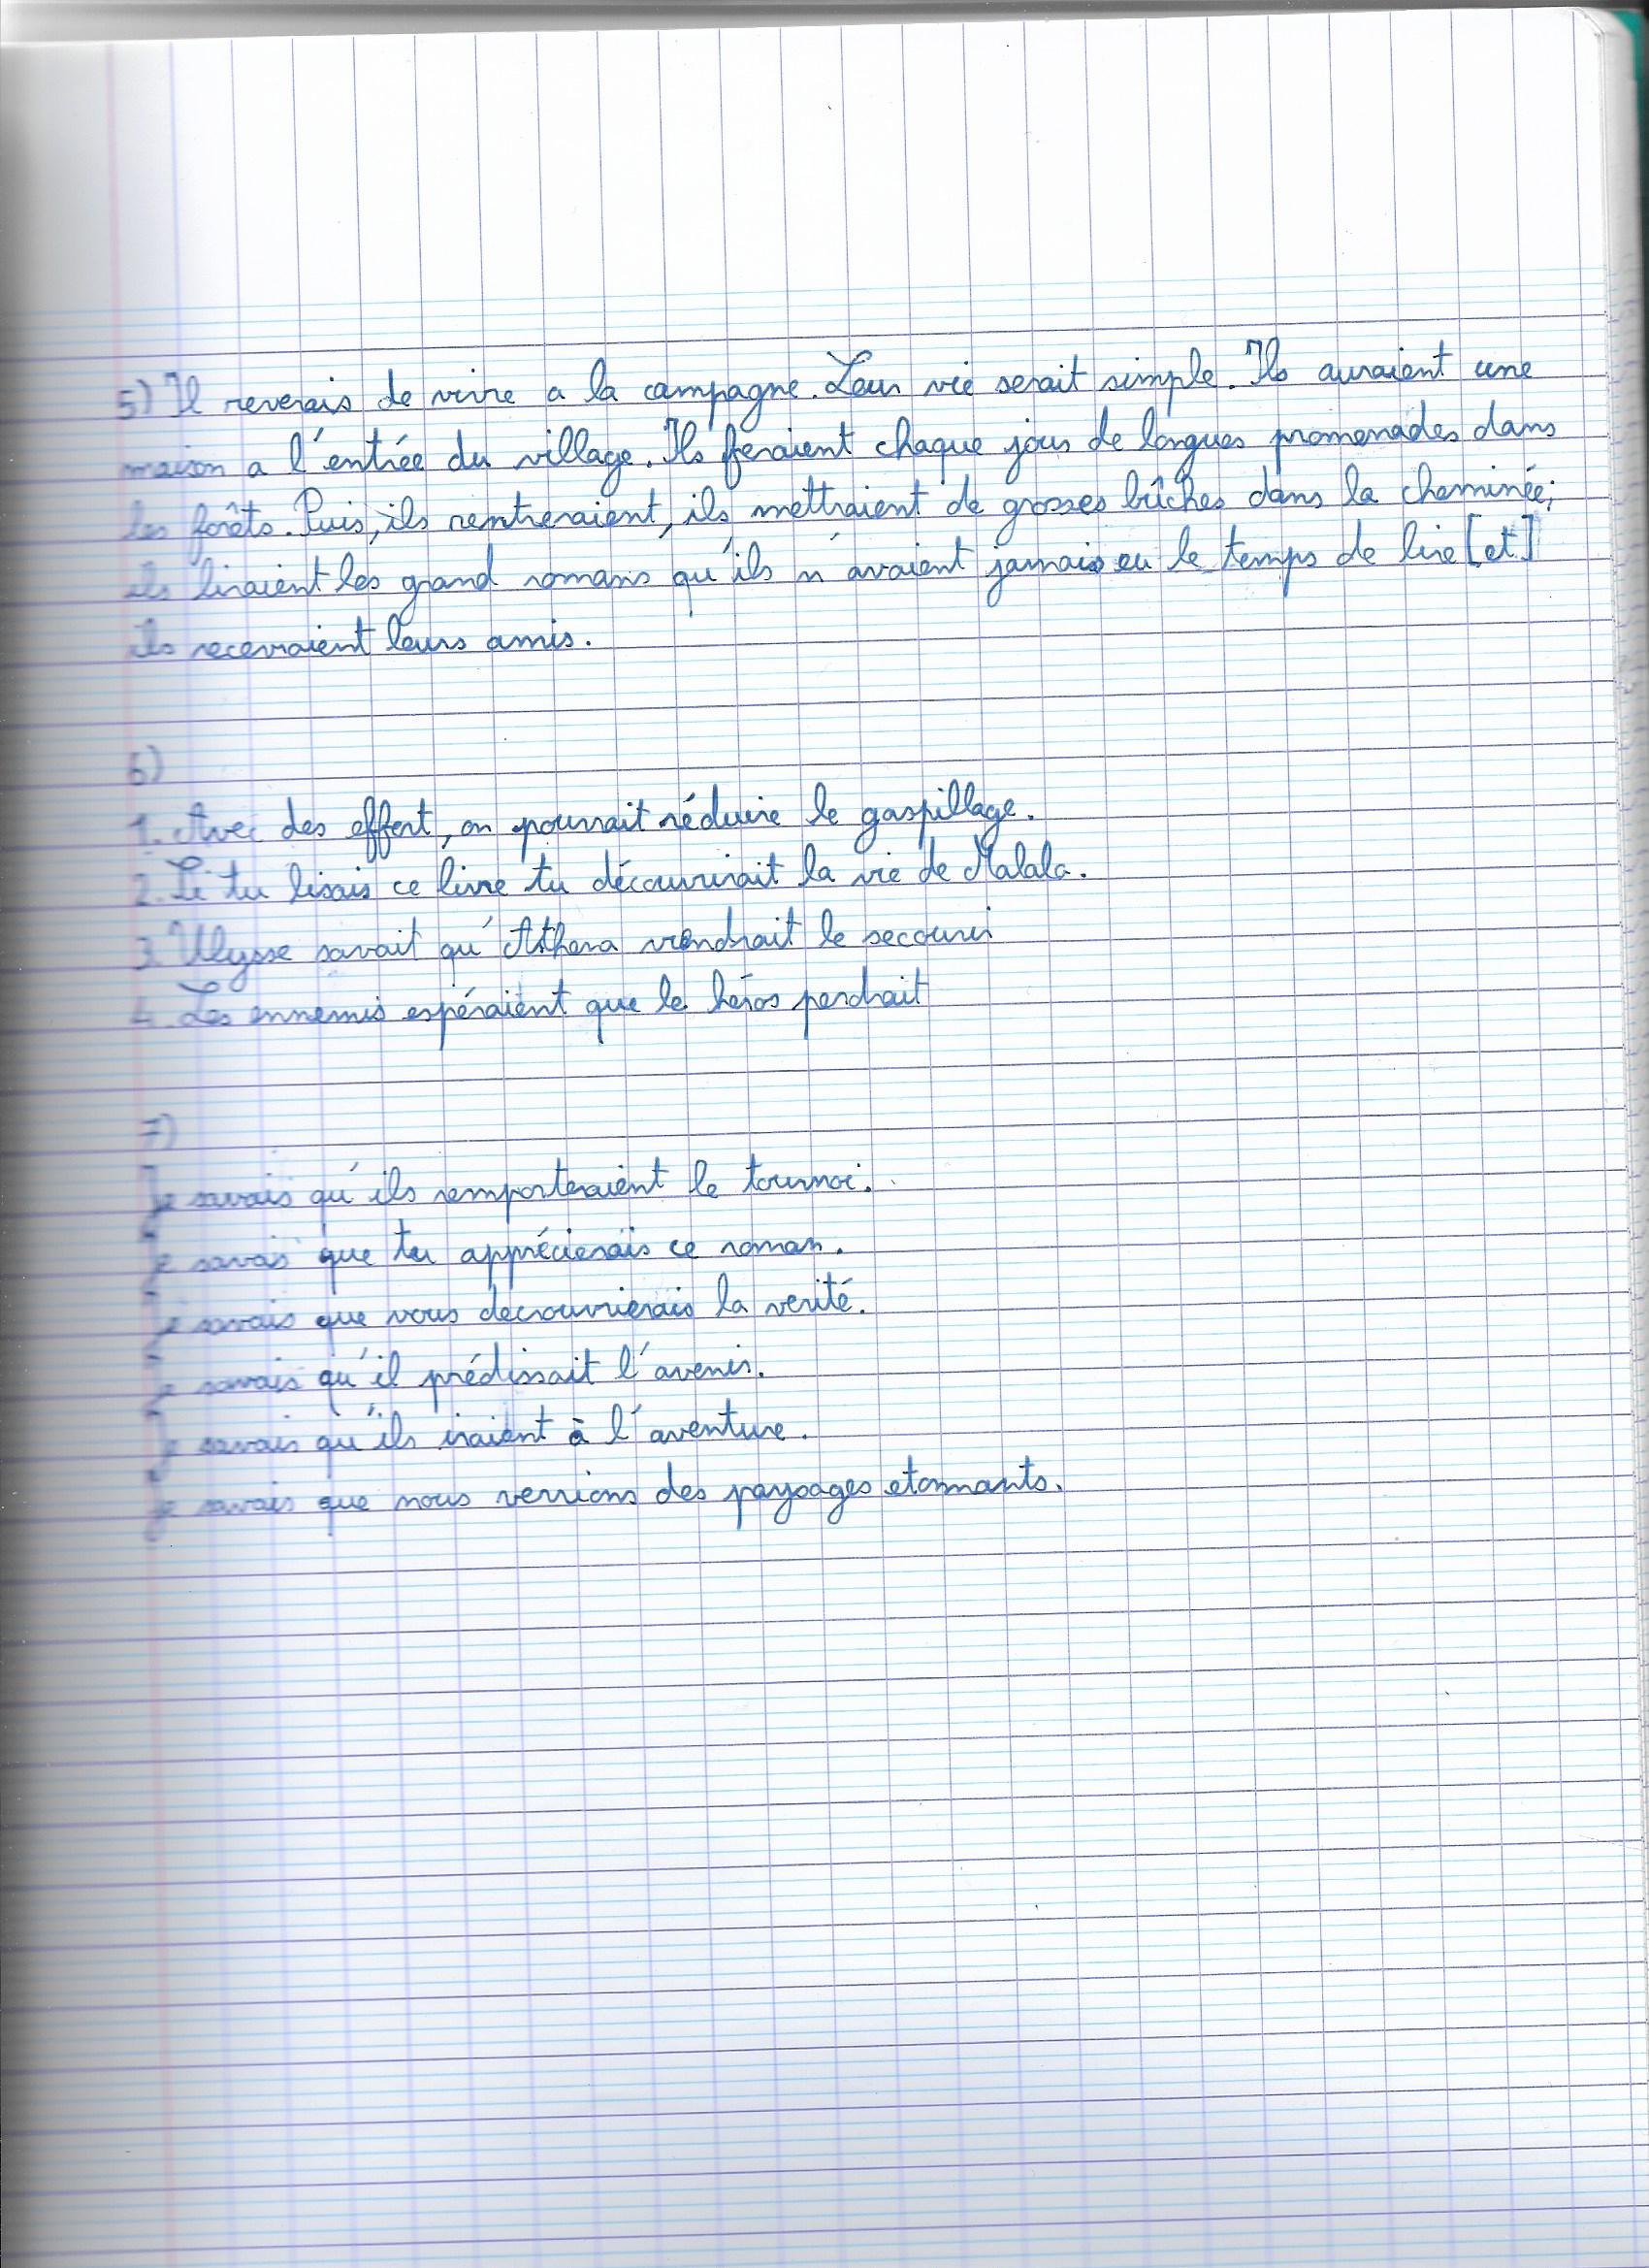 5) Il reverais de vivre a la campagne. Leur vie serait simple. Ils auraient une
maison a l'entrée du village. Ils feraient chaque jours de longues promenades dans
les forêts. Puis, ils rentreraient, ils mettraient de grosses bûches dans la cheminée;
ils liraient les grand romans qu'ils n'avaient jamais eu le temps de lire [et]
ils recevraient leurs amis.
6)
1. Avec des effort, on pourrait réduire le gaspillage.
2. Si tu lisais ce livre tu découvrirait la vie de Malala.
3. Ulysse savait qu'Athena viendrait le secourir
4. Les ennemis espéraient que le héros perdrait
7)
Je savais qu'ils remporteraient le tournoi.
Je savais que tu apprécierais ce roman.
Je savais que vous decrouvrierais la verité.
Je savais qu'il prédissait l'avenir.
Je savais qu'ils iraient à l'aventure.
Je savais que nous verrions des paysages etonnants.